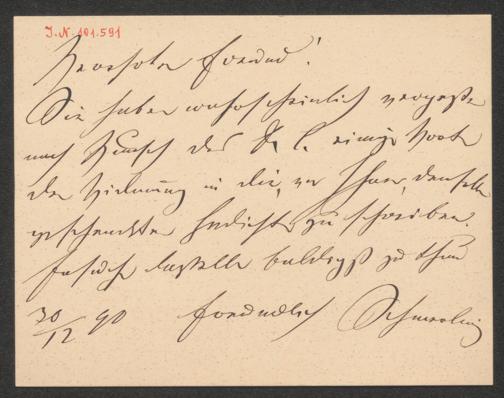 I.N. 101.591
Verehrter Freund!
Sie haben wahrscheinlich vergessen
nach Wunsch des Dr. C. einige Worte
der Widmung in die, von Ihnen, demselben
geschenkten Gedichte zu schreiben.
Ersuche dasselbe baldigst zu thun
30/12 90 Freundlich Schmerling